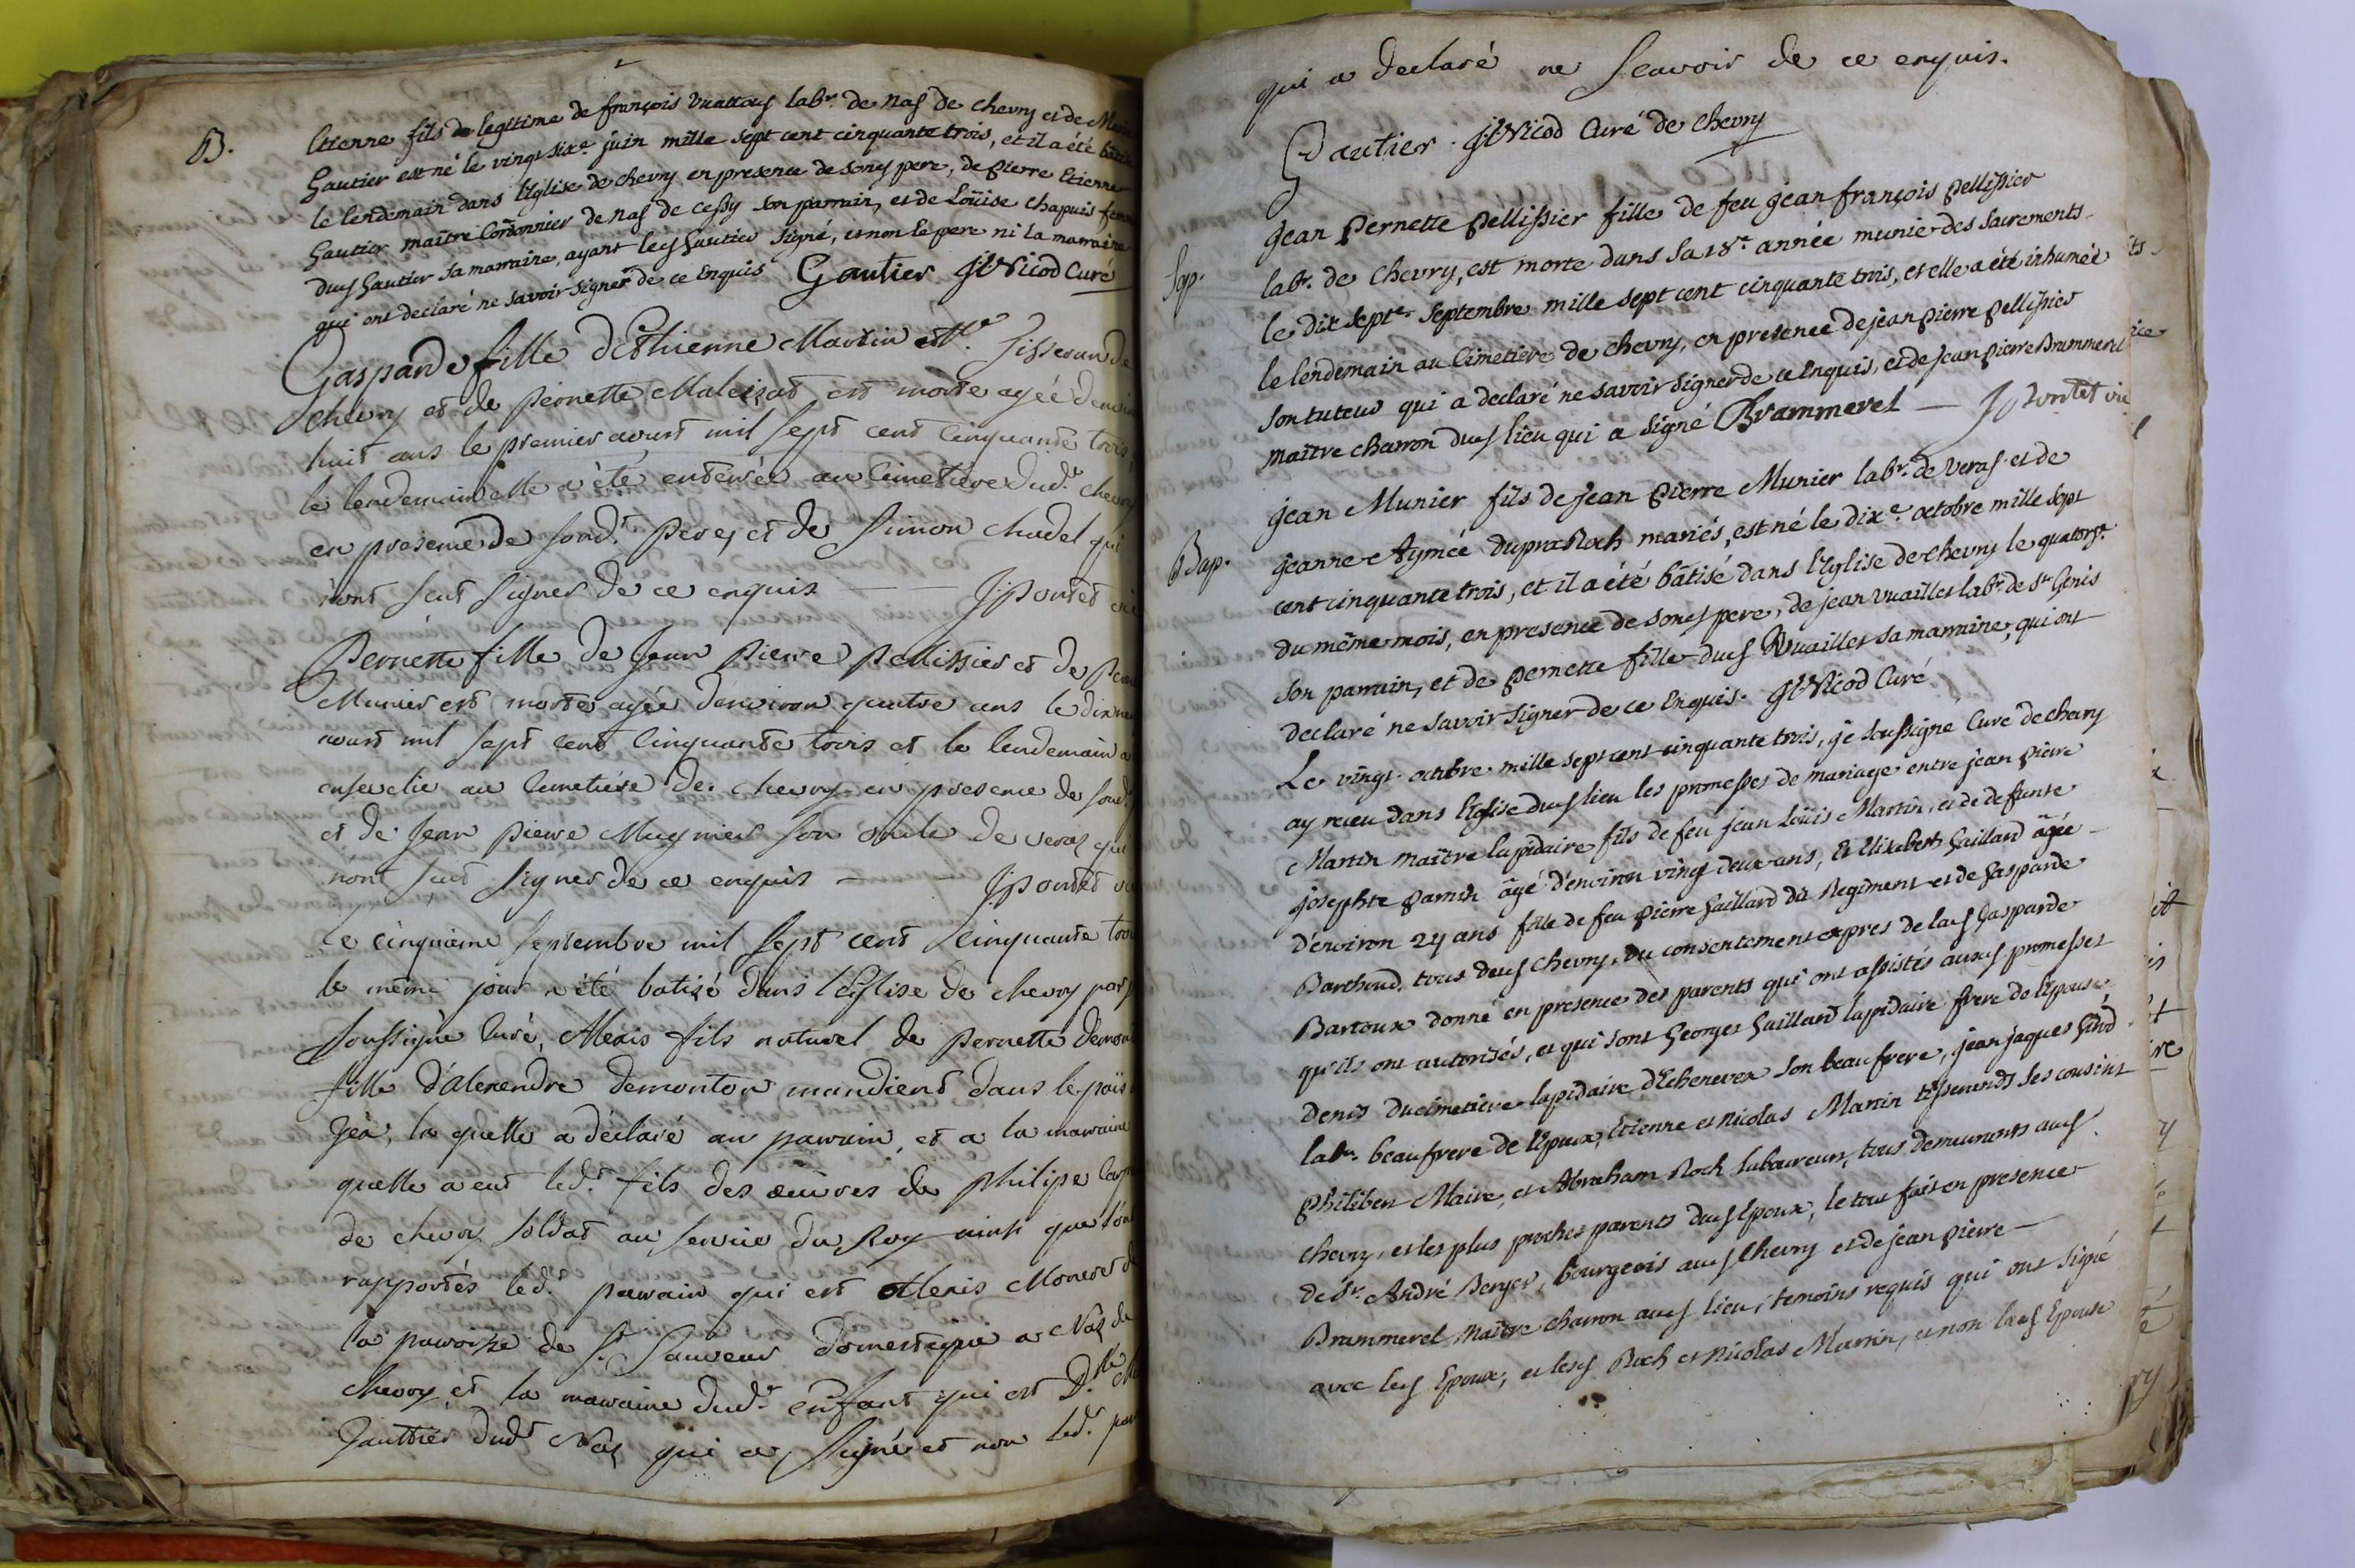 B.
Etienne fils de legitime de françois Vuattouy labr. de nas de chevry et de
Gautier est né le vingt sixe. juin mille sept cent cinquante trois, et il a été
le lendemain dans l'Eglise de chevry en presence de sond pere, de pierre Etienne
Gautier maitre Cordonnier de nas de cessy son parrain, et de Loüise chapuis
dud Gautier sa marraine, ayant led Gautier signé, et non le pere ni la marraine
qui ont declaré ne savoir signer de ce Enquis Gautier Nicod Curé
Gasparde fille d'Ethienne Martin Me. Tisseran de
chevry et de Pernette Maleizat est morte agée
huit ans le premier aoust mil sept cent Cinquante trois
le lendemain elle a été enterrée au Cimetiere dudt. chevry
en presence de sondt. Pere, et de Simon chadel qui
n'ont sçut signer de ce enquis — JPontet
Pernette fille de Jean Pierre Pellissier et de
Munier est morte agée denviron quatre ans le
aoust mil sept cent Cinquante trois et le lendemain
ensevelie au Cimetiére de chevry en presence de
et de Jean Pierre Mugnier son oncle de veraz qui
n'ont sçut signer de ce enquis — — JPontet
Le cinquieme septembre mil sept cent Cinquante
le même jour a été batizé dans l'Eglise de chevry par
soussigné Curé, Alexis fils naturel de Pernette
fille d'Alexendre demonton mandient dans le païs
Jéx, la quelle a déclaré au parrain, et a la marraine
quelle a eut ledt. fils des œuvres de philipe
de chevry soldat au service du Roy ainsi que
rapportés ledt. parrain qui est Alexis
la paroisse de St. Sauveur domestique a Naz de
chevry, et la marraine dudt. enfant qui est Dlle
Gauthier dudt Naz qui a signé et non ledt.
qui a declaré ne scavoir de ce enquis.
Gautier Nicod Curé de chevry
Sep.
jean Pernette Pellissier fille de feu jean françois pellissier
labr. de chevry, est morte dans sa 18e. année munie des sacrements
le dix septe. septembre mille sept cent cinquante trois, et elle a été inhumée
le lendemain au cimetiere de chevry, en presence de jean pierre pellissier
son tuteur qui a declaré ne savoir signer de ce Enquis, et de jean pierre Brammerel
maitre charron dud lieu qui a signé Brammerel — JPontet
Bap.
jean Munier fils de jean pierre Munier labr. de veras et de
jeanne Aymée dupraz Roch mariés, est né le dixe. octobre mille sept
cent cinquante trois, et il a été bâtisé dans l'Eglise de chevry le quatorze.
du même mois, en presence de sond pere, de jean Vuaillet labr. de St Genis
son parrain, et de pernette fille dud Vuaillet sa marraine, qui ont
declaré ne savoir signer de ce Enquis. Nicod Curé
Le vingt octobre mille sept cent cinquante trois, je soussigné Curé de chevry
ay receu dans l'Eglise dud lieu les promesses de mariage entre jean pierre
Martin maitre lapidaire fils de feu jean Loüis Martin, et de defunte
josephte âgé d'environ vingt deux ans, Et Elizabeth Gaillard âgée
d'environ 24 ans fille de feu pierre Gaillard dit Regiment et de Gasparde
Barthoud. tous dud Chevry, du consentement expres de lad Gasparde
Bartoux donné en presence des parents qui ont assistés auxd promesses
qu'ils ont autorisés, et qui sont Georges Gaillard lapidaire frere de l'Epouse
Denis ducimetiere lapidaire d'Echenevex son beaufrere, jean jaques
labr. beaufrere de l'Epoux, Etienne et nicolas Martin tisserands ses cousins
Philibert Maire, et Abraham Roch laboureurs, tous demeurants aud
chevry, et les plus proches parents dud Epoux, le tout fait en presence
de Sr. André Berger, bourgeois aud Chevry et de jean pierre —
Brammerel Maitre charron aud lieu, temoins requis qui ont signé
avec led Epoux, et lesd Roch et nicolas Martin, et non lad Epouse